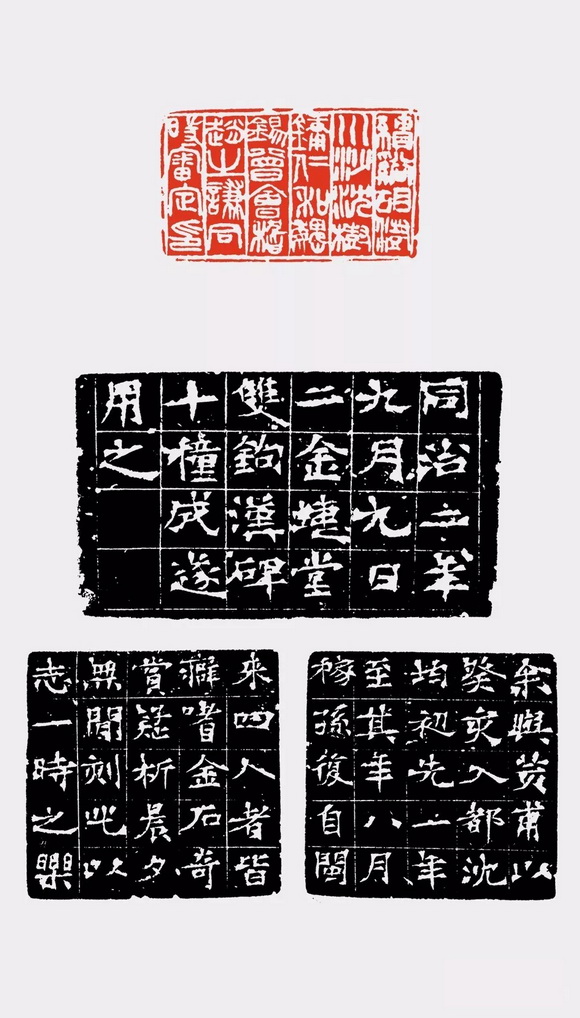 績谿胡澍
川沙沈樹
鏞仁和魏
錫曾會稽
趙之謙同
時審定印
同治二年
九月九日
二金蜨堂
雙鉤漢碑
十穜成遂
用之
余與荄甫以
癸亥入都沈
均初先一年
至其年八月
稼孫復自閩
來四人者皆
癖嗜金石奇
賞疑析晨夕
無閒刻此以
志一時之樂